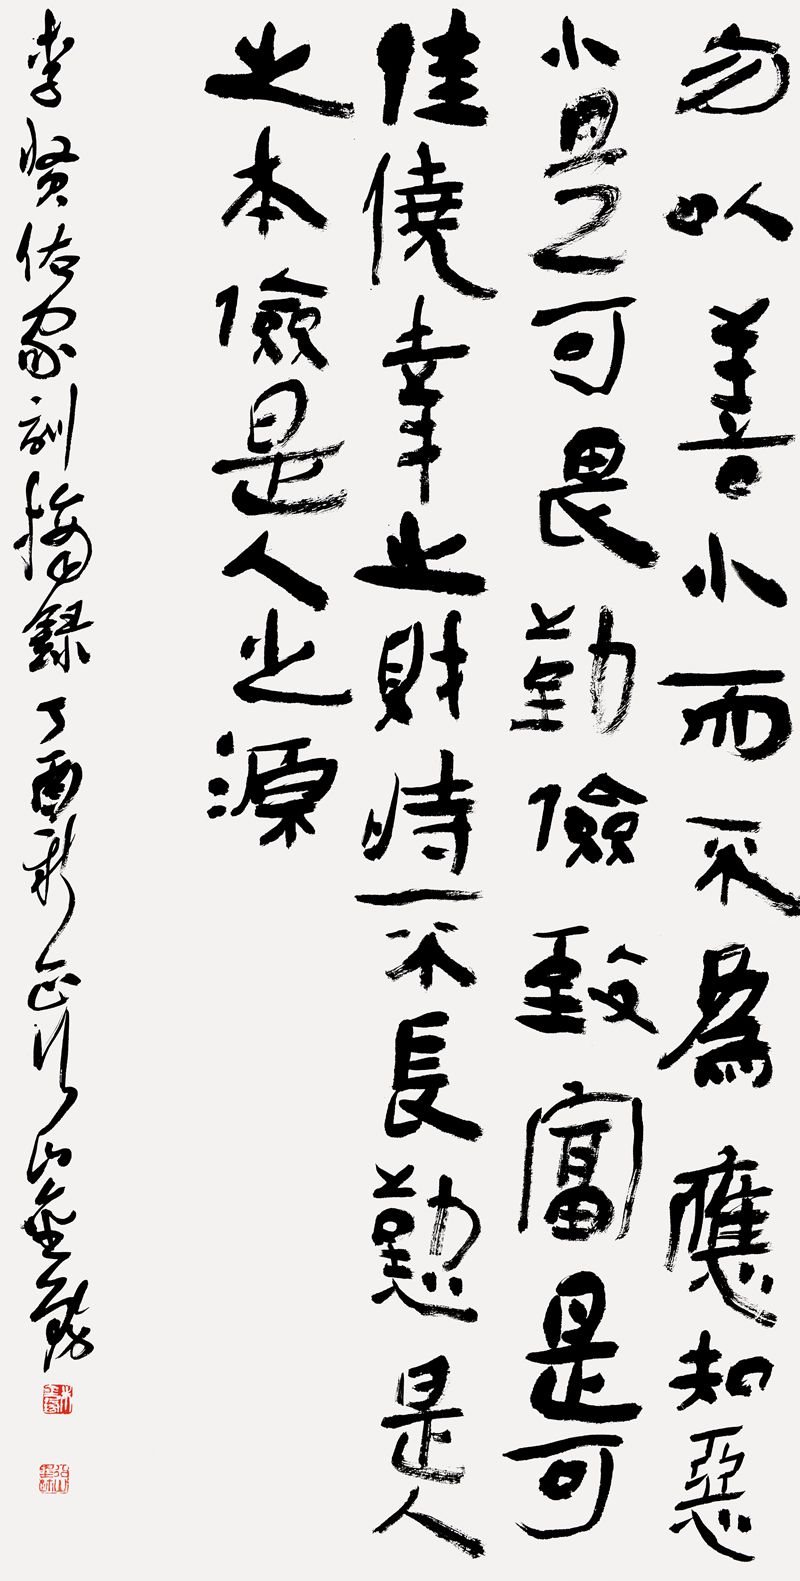 勿以善小而不爲應知惡
小可畏勤儉致富是可
佳僥幸之財時不長懃是人
之本儉是人之源
李贤佑家訓摘録丁酉新正